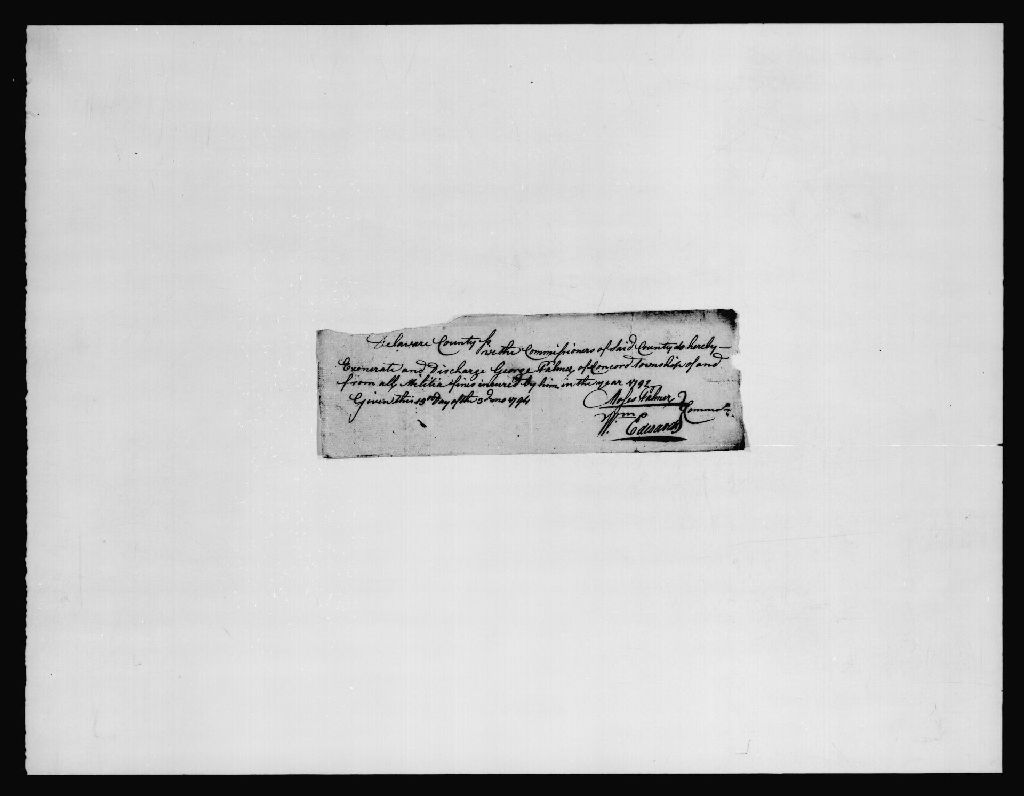 Delaware County ss
we the Commissioners of Said County do hereby
Exonerate and Discharge George Palmer of Concord Township of and
from all Militia fines incured by him in the year 1792
Given this 13th Day of the 3d mo 1794
Moses Palmer
Wm Edwards
Commrs.